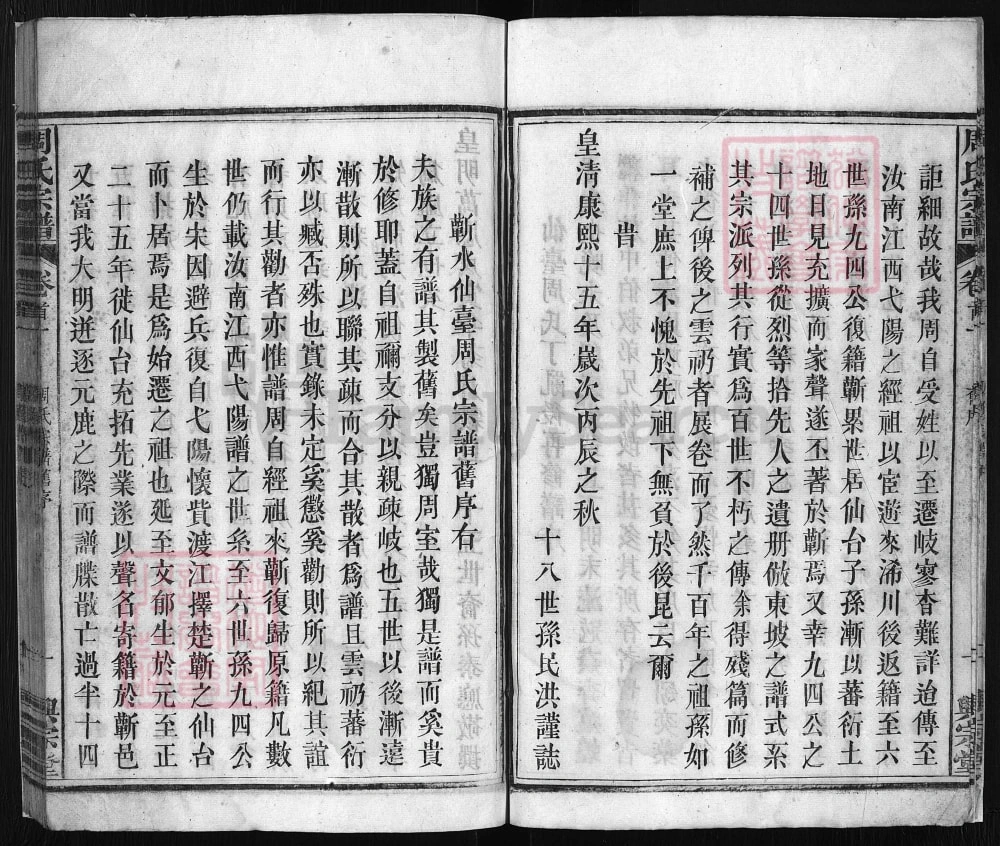 周氏宗譜
卷首一
舊序
興宗堂
詎細故哉我周自受姓以至遷岐寥杳難詳迨傳至
汝南江西弋陽之經祖以宦遊來浠川後返籍至六
世孫九四公復籍蘄累世居仙台子孫漸以蕃衍土
地日見充擴而家聲遂丕著於蘄焉又幸九四公之
十四世孫從烈等拾先人之遺册倣東坡之譜式係
其宗派列其行實爲百世不朽之傳余得殘篇而修
補之俾後之雲礽者展卷而了然千百年之祖孫如
一堂庶上不愧於先祖下無負於後昆云爾
旹
皇清康熙十五年嵗次丙辰之秋
十八世孫民洪謹誌
蘄水仙臺周氏宗譜舊序右
夫族之有譜其製舊矣豈獨周室哉獨是譜而奚貴
於修耶蓋自祖禰支分以親疎岐也五世以後漸遠
漸散則所以聯其疎而合其散者爲譜且雲礽蕃衍
亦以臧否殊也實錄未定奚懲奚勸則所以紀其誼
而行其勸者亦惟譜周自經祖來蘄復歸原籍凡數
世仍載汝南江西弋陽譜之世系至六世孫九四公
生於宋因避兵復自弋陽懷貲渡江擇楚蘄之仙台
而卜居焉是爲始遷之祖也延至文郁生於元至正
二十五年徙仙台充拓先業遂以聲名寄籍於蘄邑
又當我大明迸逐元鹿之際而譜牒散亡過半十四
周氏宗譜
卷首一
周氏宗譜舊序
一
興宗堂